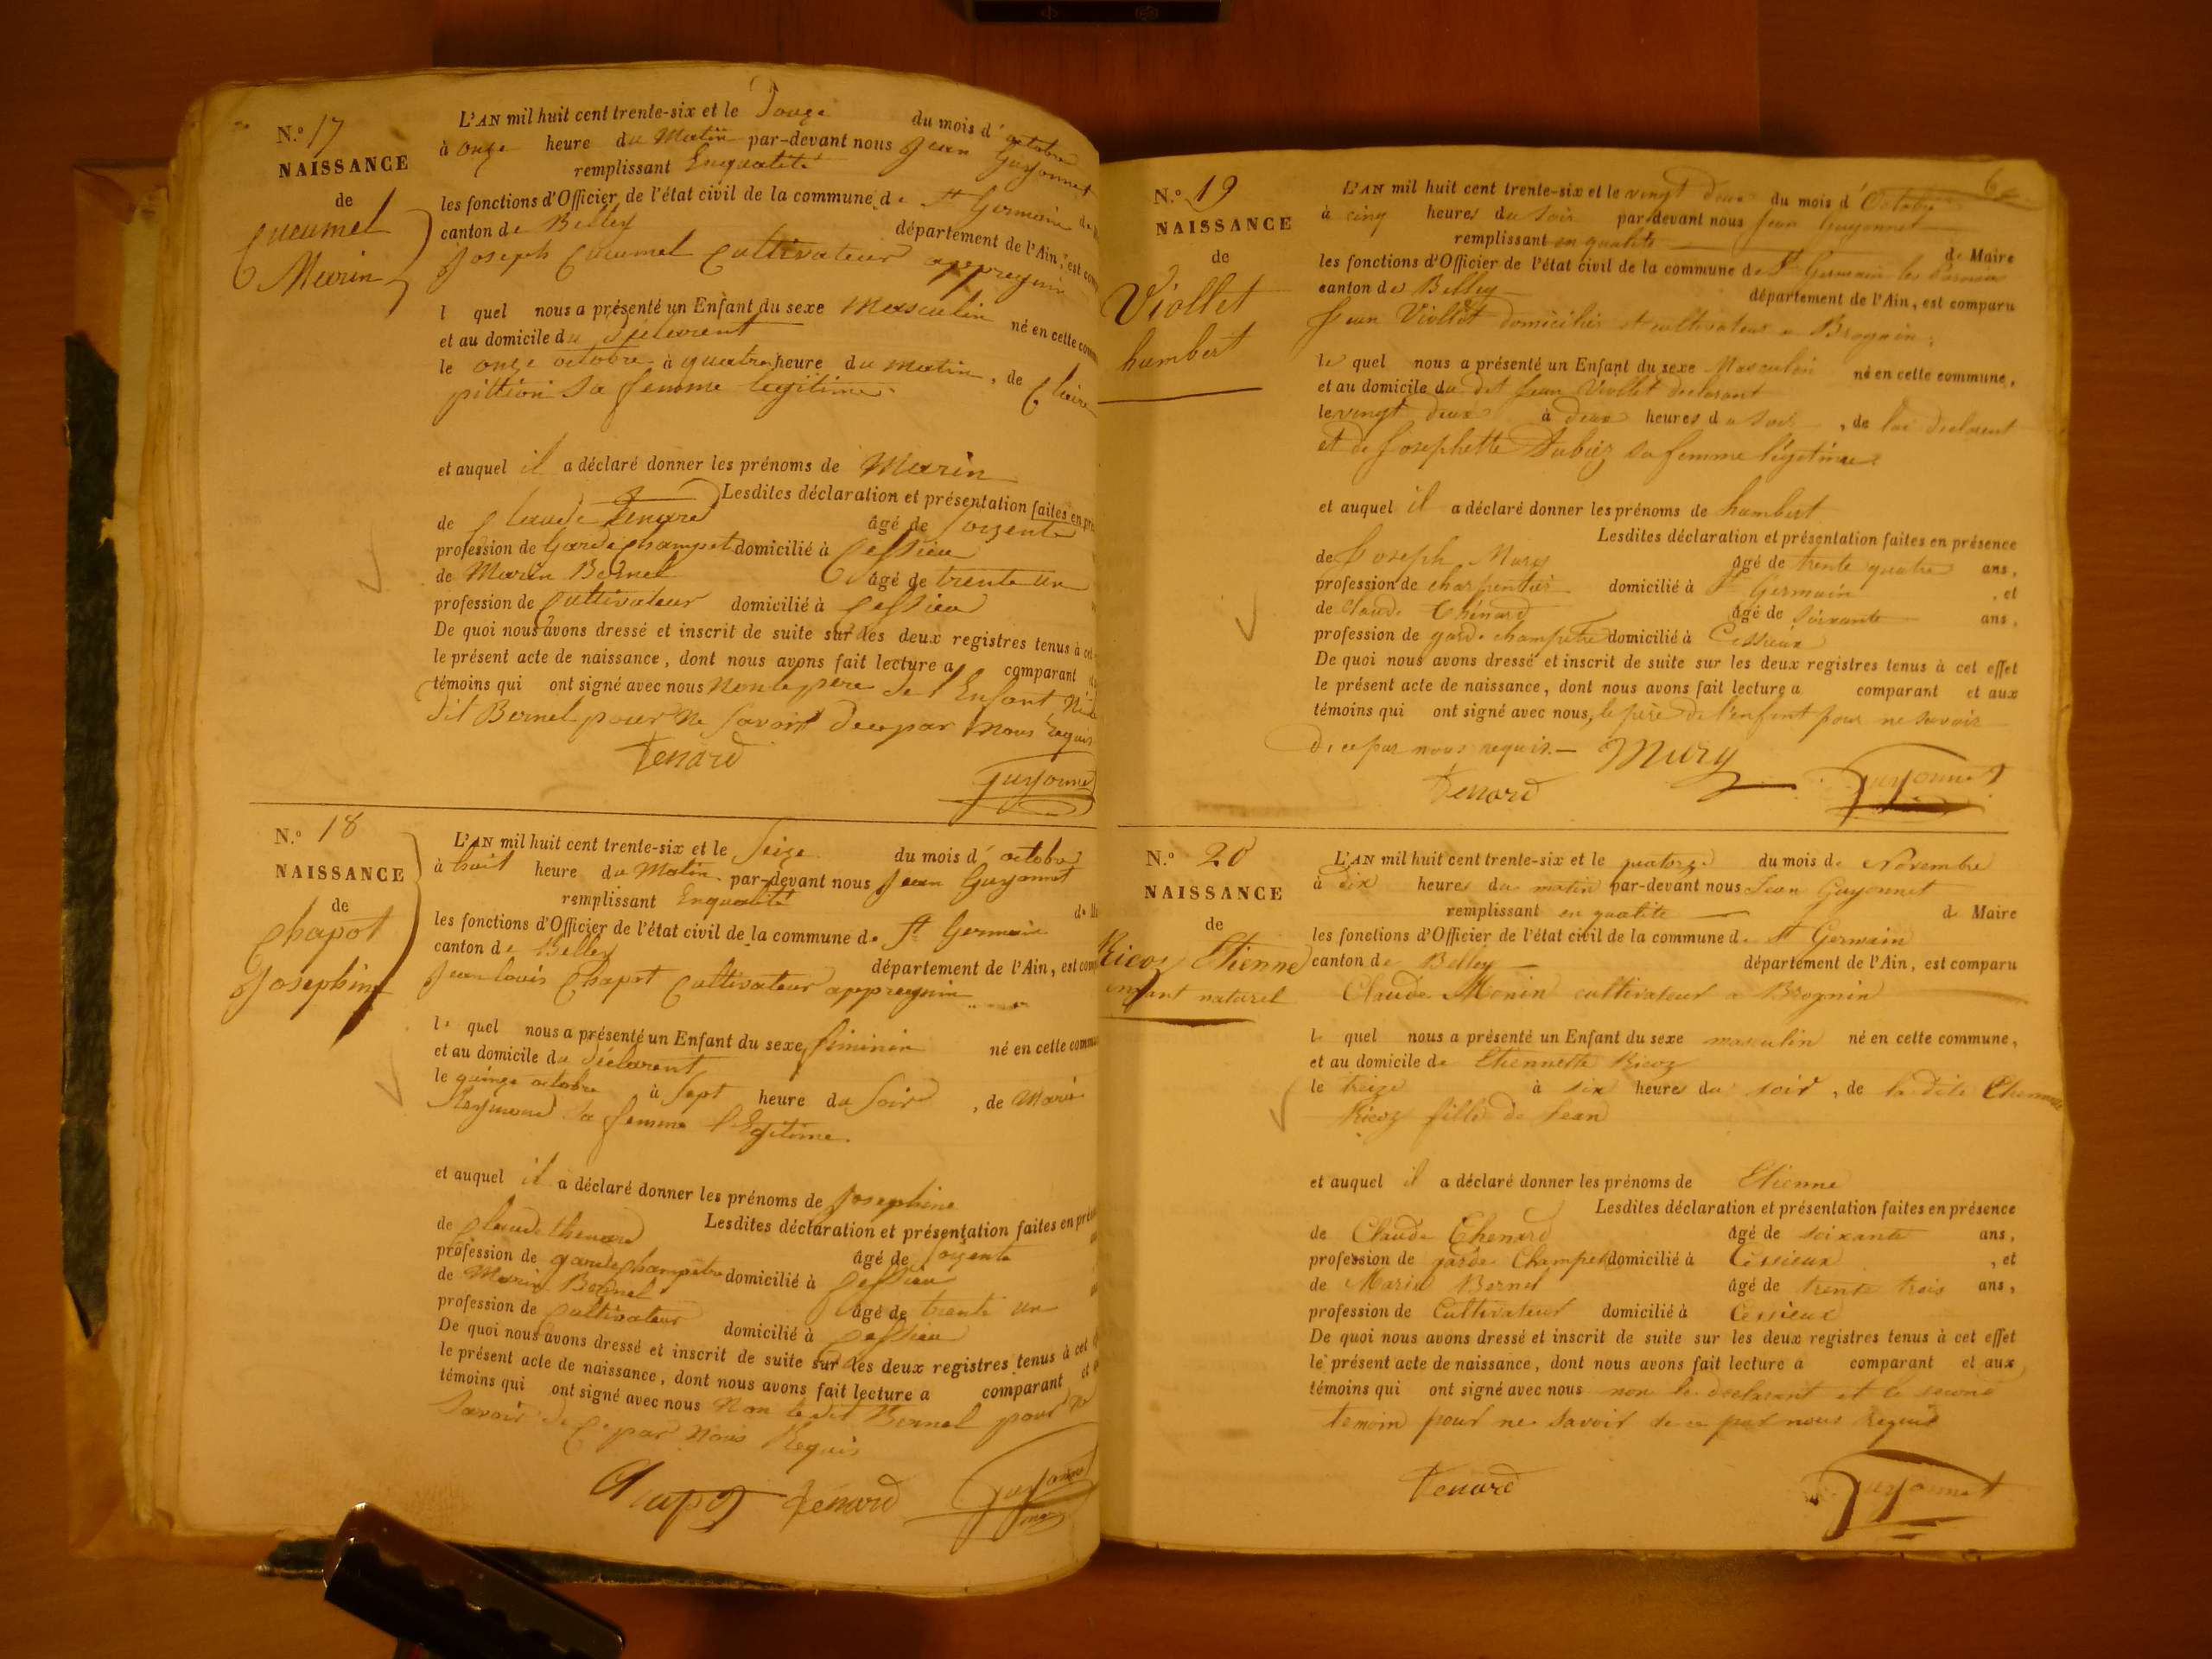 N.º 17
NAISSANCE
de
Cucumel
Marin
L'AN mil huit cent trente-six et le Douze du mois d'octobre
à onze heure du Matin par-devant nous Jean Guyonnet
remplissant En qualité
les fonctions d'Officier de l'état civil de la commune de St Germain
canton de Belley département de l'Ain, est
Joseph Cucumel Cultivateur
l quel nous a présenté un Enfant du sexe Masculin né en cette
et au domicile du déclarent
le onze octobre à quatre heure du matin, de Claire
pittion Sa femme legitime
et auquel il a déclaré donner les prénoms de Marin
Lesdites déclaration et présentation faites en
de Claude Tenard âgé de soizente
profession de Garde Champet domicilié à Cessieu
de Marin Bernel âgé de trente un
profession de Cultivateur domicilié à Cessieu
De quoi nous avons dressé et inscrit de suite sur les deux registres tenus à
le présent acte de naissance, dont nous avons fait lecture a comparant
témoins qui ont signé avec nous Non le père de l'Enfant
dit Bernel pour Ne Savoir de ce par Nous Requis
Tenard
Guyonnet
N.º 18
NAISSANCE
de
Chapot
Josephine
L'AN mil huit cent trente-six et le Seize du mois d'octobre
à huit heure du Matin par-devant nous Jean Guyonnet
remplissant En qualité de
les fonctions d'Officier de l'état civil de la commune de St Germain
canton de Belley département de l'Ain, est
Jean louis Chapot Cultivateur
le quel nous a présenté un Enfant du sexe féminin né en cette
et au domicile du déclarent
le quinze octobre à Sept heure du Soir, de Marie
Reymond Sa femme légitime.
et auquel il a déclaré donner les prénoms de Josephine
Lesdites déclaration et présentation faites en
de Claude thenard âgé de soizente
profession de garde champetre domicilié à Cessieu
de Marin Bernel âgé de trente un
profession de Cultivateur domicilié à Cessieu
De quoi nous avons dressé et inscrit de suite sur les deux registres tenus à cet
le présent acte de naissance, dont nous avons fait lecture a comparant et
témoins qui ont signé avec nous Non le dit Bernel pour Ne
Savoir de Ce par Nous Requis
Chapot Tenard Guyonnet
6
N.º 19
NAISSANCE
de
Viollet
humbert
L'AN mil huit cent trente-six et le vingt deux du mois d'Octobre
à cinq heures du soir par-devant nous Jean Guyonnet
remplissant en qualité de Maire
les fonctions d'Officier de l'état civil de la commune de St Germain les Paroisses
canton de Belley département de l'Ain, est comparu
Jean Viollet domicilié et cultivateur a Brognin;
le quel nous a présenté un Enfant du sexe Masculin né en cette commune,
et au domicile du dit Jean Viollet declarant
le vingt deux à deux heures du soir, de lui declarent
et de Josephette Dubiez sa femme légitime
et auquel il a déclaré donner les prénoms de humbert
Lesdites déclaration et présentation faites en présence
de Joseph Mury âgé de trente quatre ans,
profession de charpentier domicilié à St Germain, et
de Claude Thénard âgé de soixante ans,
profession de garde champetre domicilié à Cessieux
De quoi nous avons dressé et inscrit de suite sur les deux registres tenus à cet effet
le présent acte de naissance, dont nous avons fait lecture a comparant et aux
témoins qui ont signé avec nous, le père de l'enfant pour ne savoir
De ce par nous requis. Mury
Tenard Guyonnet
N.º 20
NAISSANCE
de
Ricoz Etienne
enfant naturel
L'AN mil huit cent trente-six et le quatorze du mois de Novembre
à dix heures du matin par-devant nous Jean Guyonnet
remplissant en qualité de Maire
les fonctions d'Officier de l'état civil de la commune de St Germain
canton de Belley département de l'Ain, est comparu
Claude Monin cultivateur a Brognin
le quel nous a présenté un Enfant du sexe masculin né en cette commune,
et au domicile de Etiennette Ricoz
le treize à six heures du soir, de la dite
Ricoz fille de Jean
et auquel il a déclaré donner les prénoms de Etienne
Lesdites déclaration et présentation faites en présence
de Claude Thenard âgé de soixante ans,
profession de garde Champet domicilié à Cessieux, et
de Marin Bernel âgé de trente trois ans,
profession de Cultivateur domicilié à Cessieux
De quoi nous avons dressé et inscrit de suite sur les deux registres tenus à cet effet
le présent acte de naissance, dont nous avons fait lecture à comparant et aux
témoins qui ont signé avec nous non le declarant et le second
temoin pour ne savoir de ce par nous Requis
Tenard Guyonnet